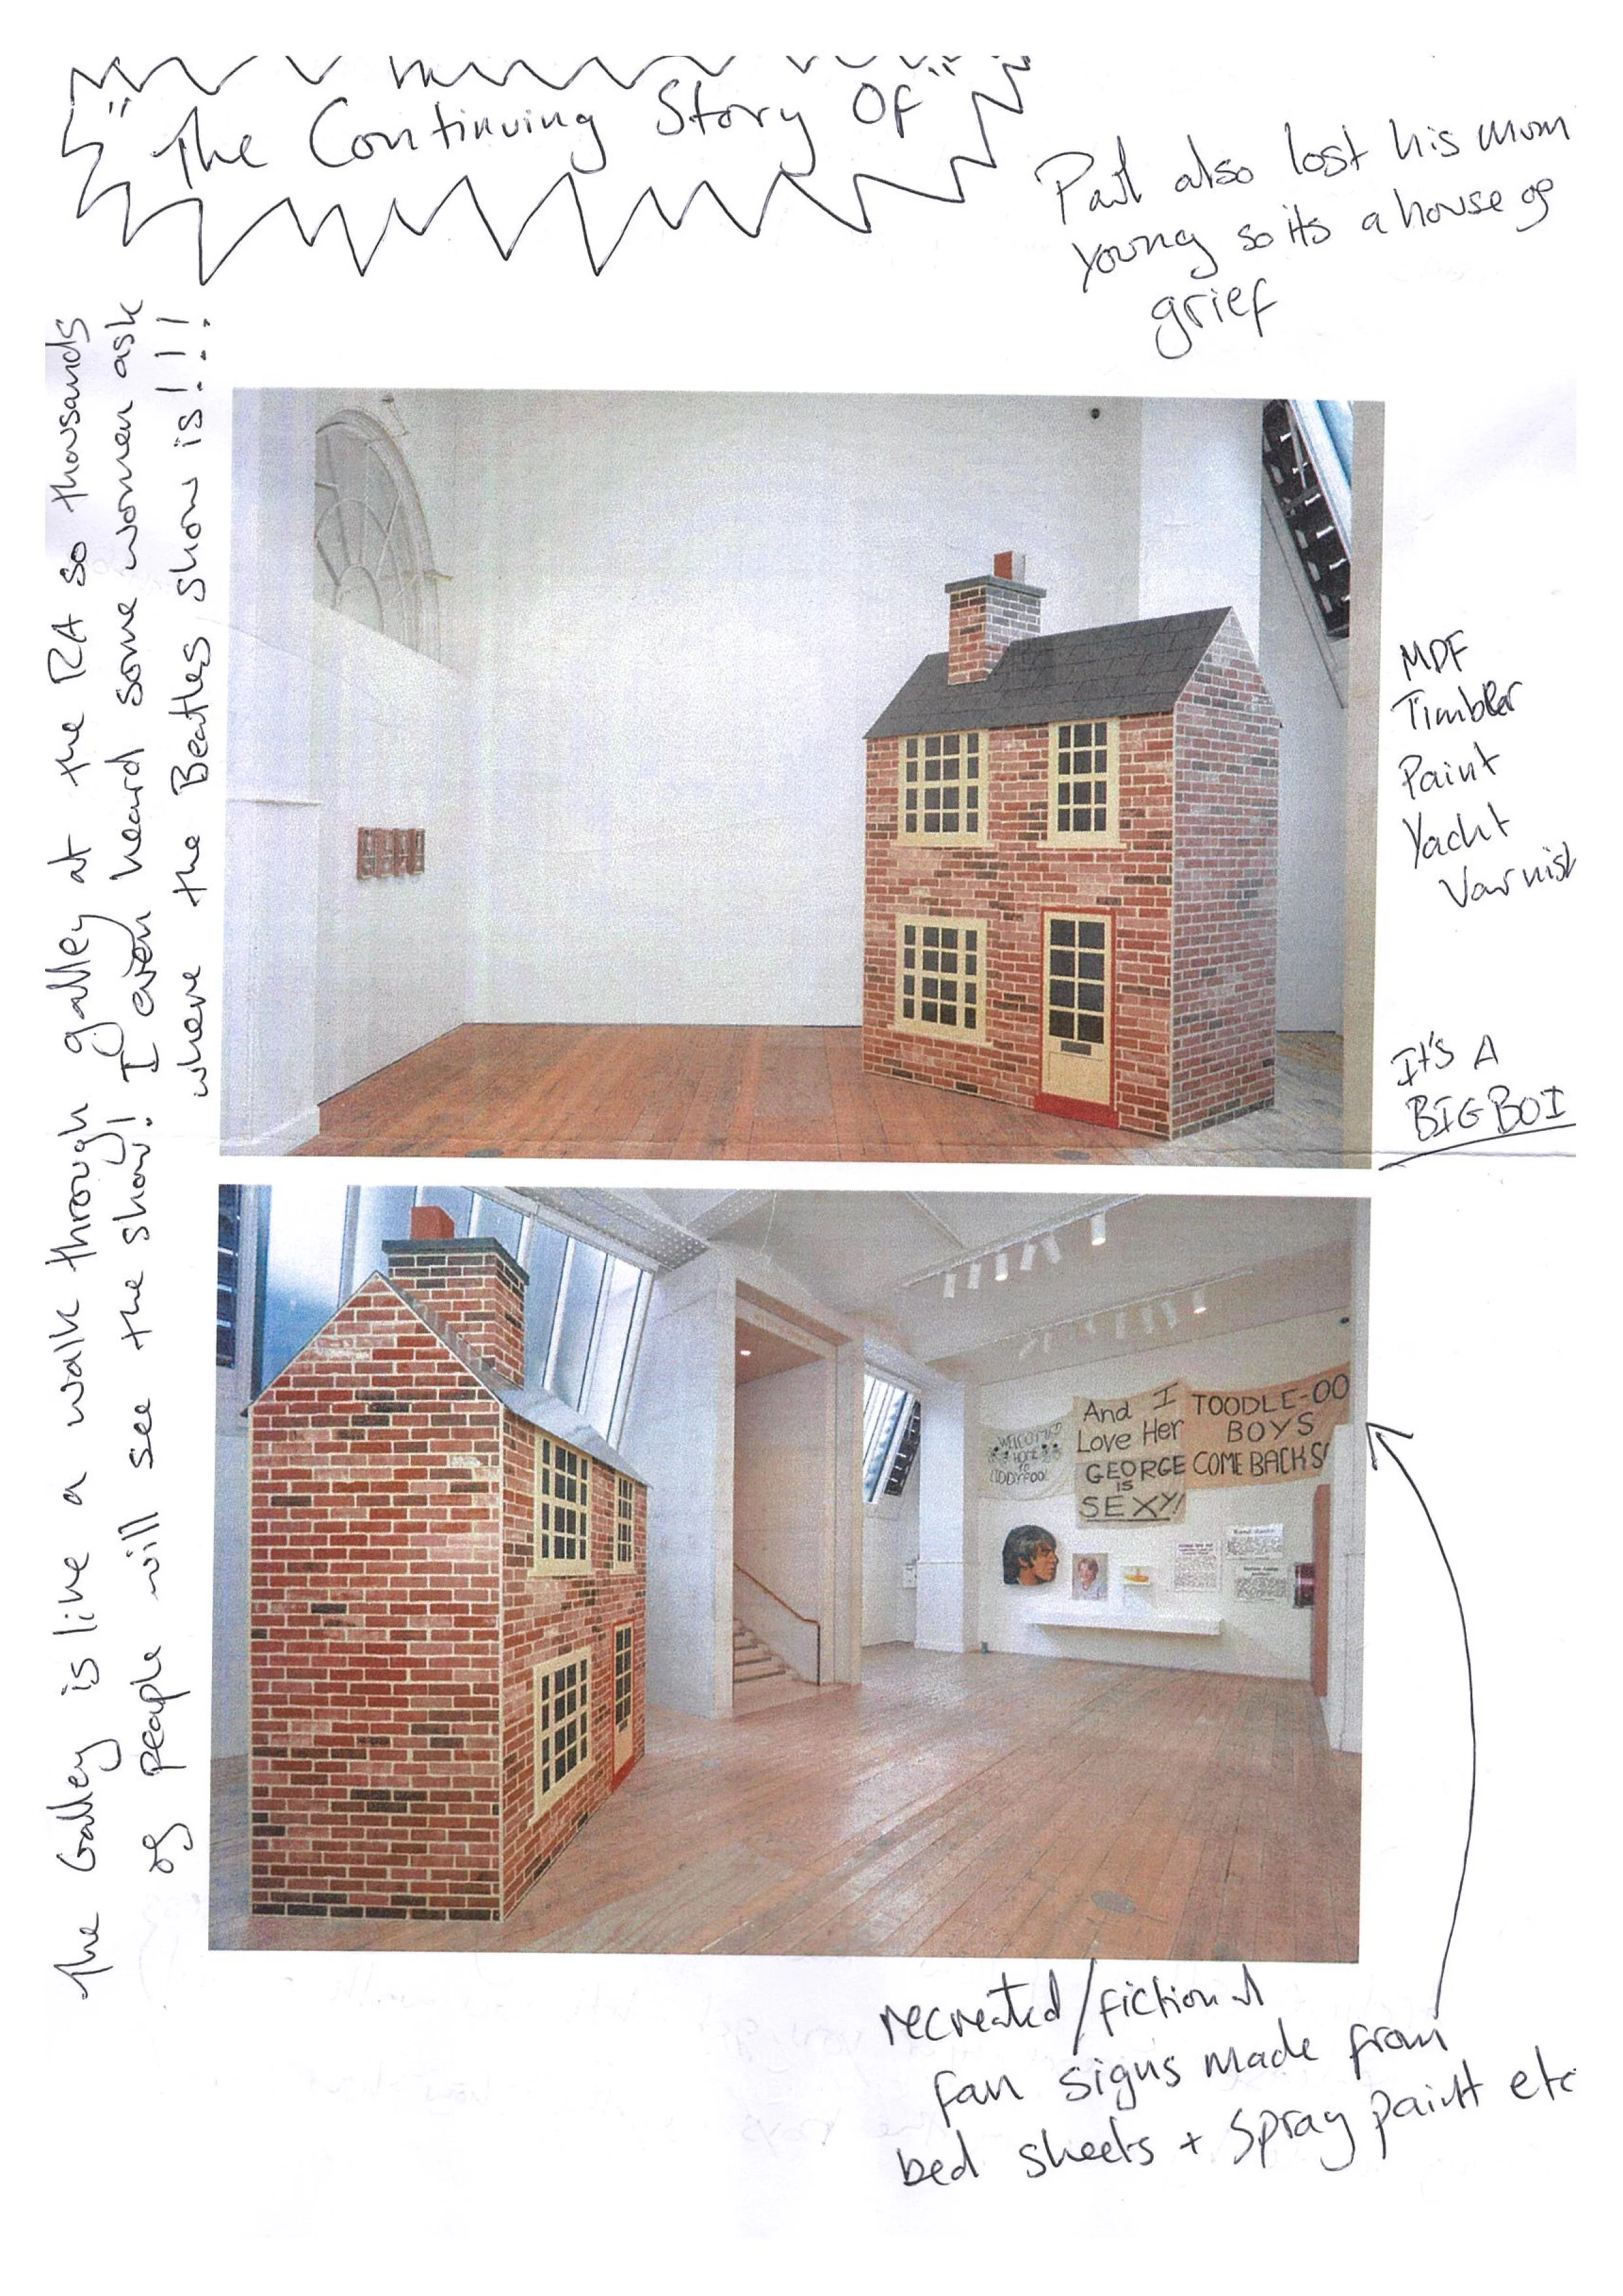 "The Continuing Story Of"
Paul also lost his mum
young so its a house of
grief
The Galley is like a walk through galley at the RA so thousands
of people will see the show! I even heard some women ask
where the Beatles show is!!!
MDF
Timber
Paint
Yacht
Varnish
It's A
BIG BOI
WELCOME
HOME
TO
And I
Love Her
GEORGE
IS
SEXY!
TOODLE-OO
BOYS
COME BACK
recreated/fictional
fan signs made from
bed sheets + spray paint etc